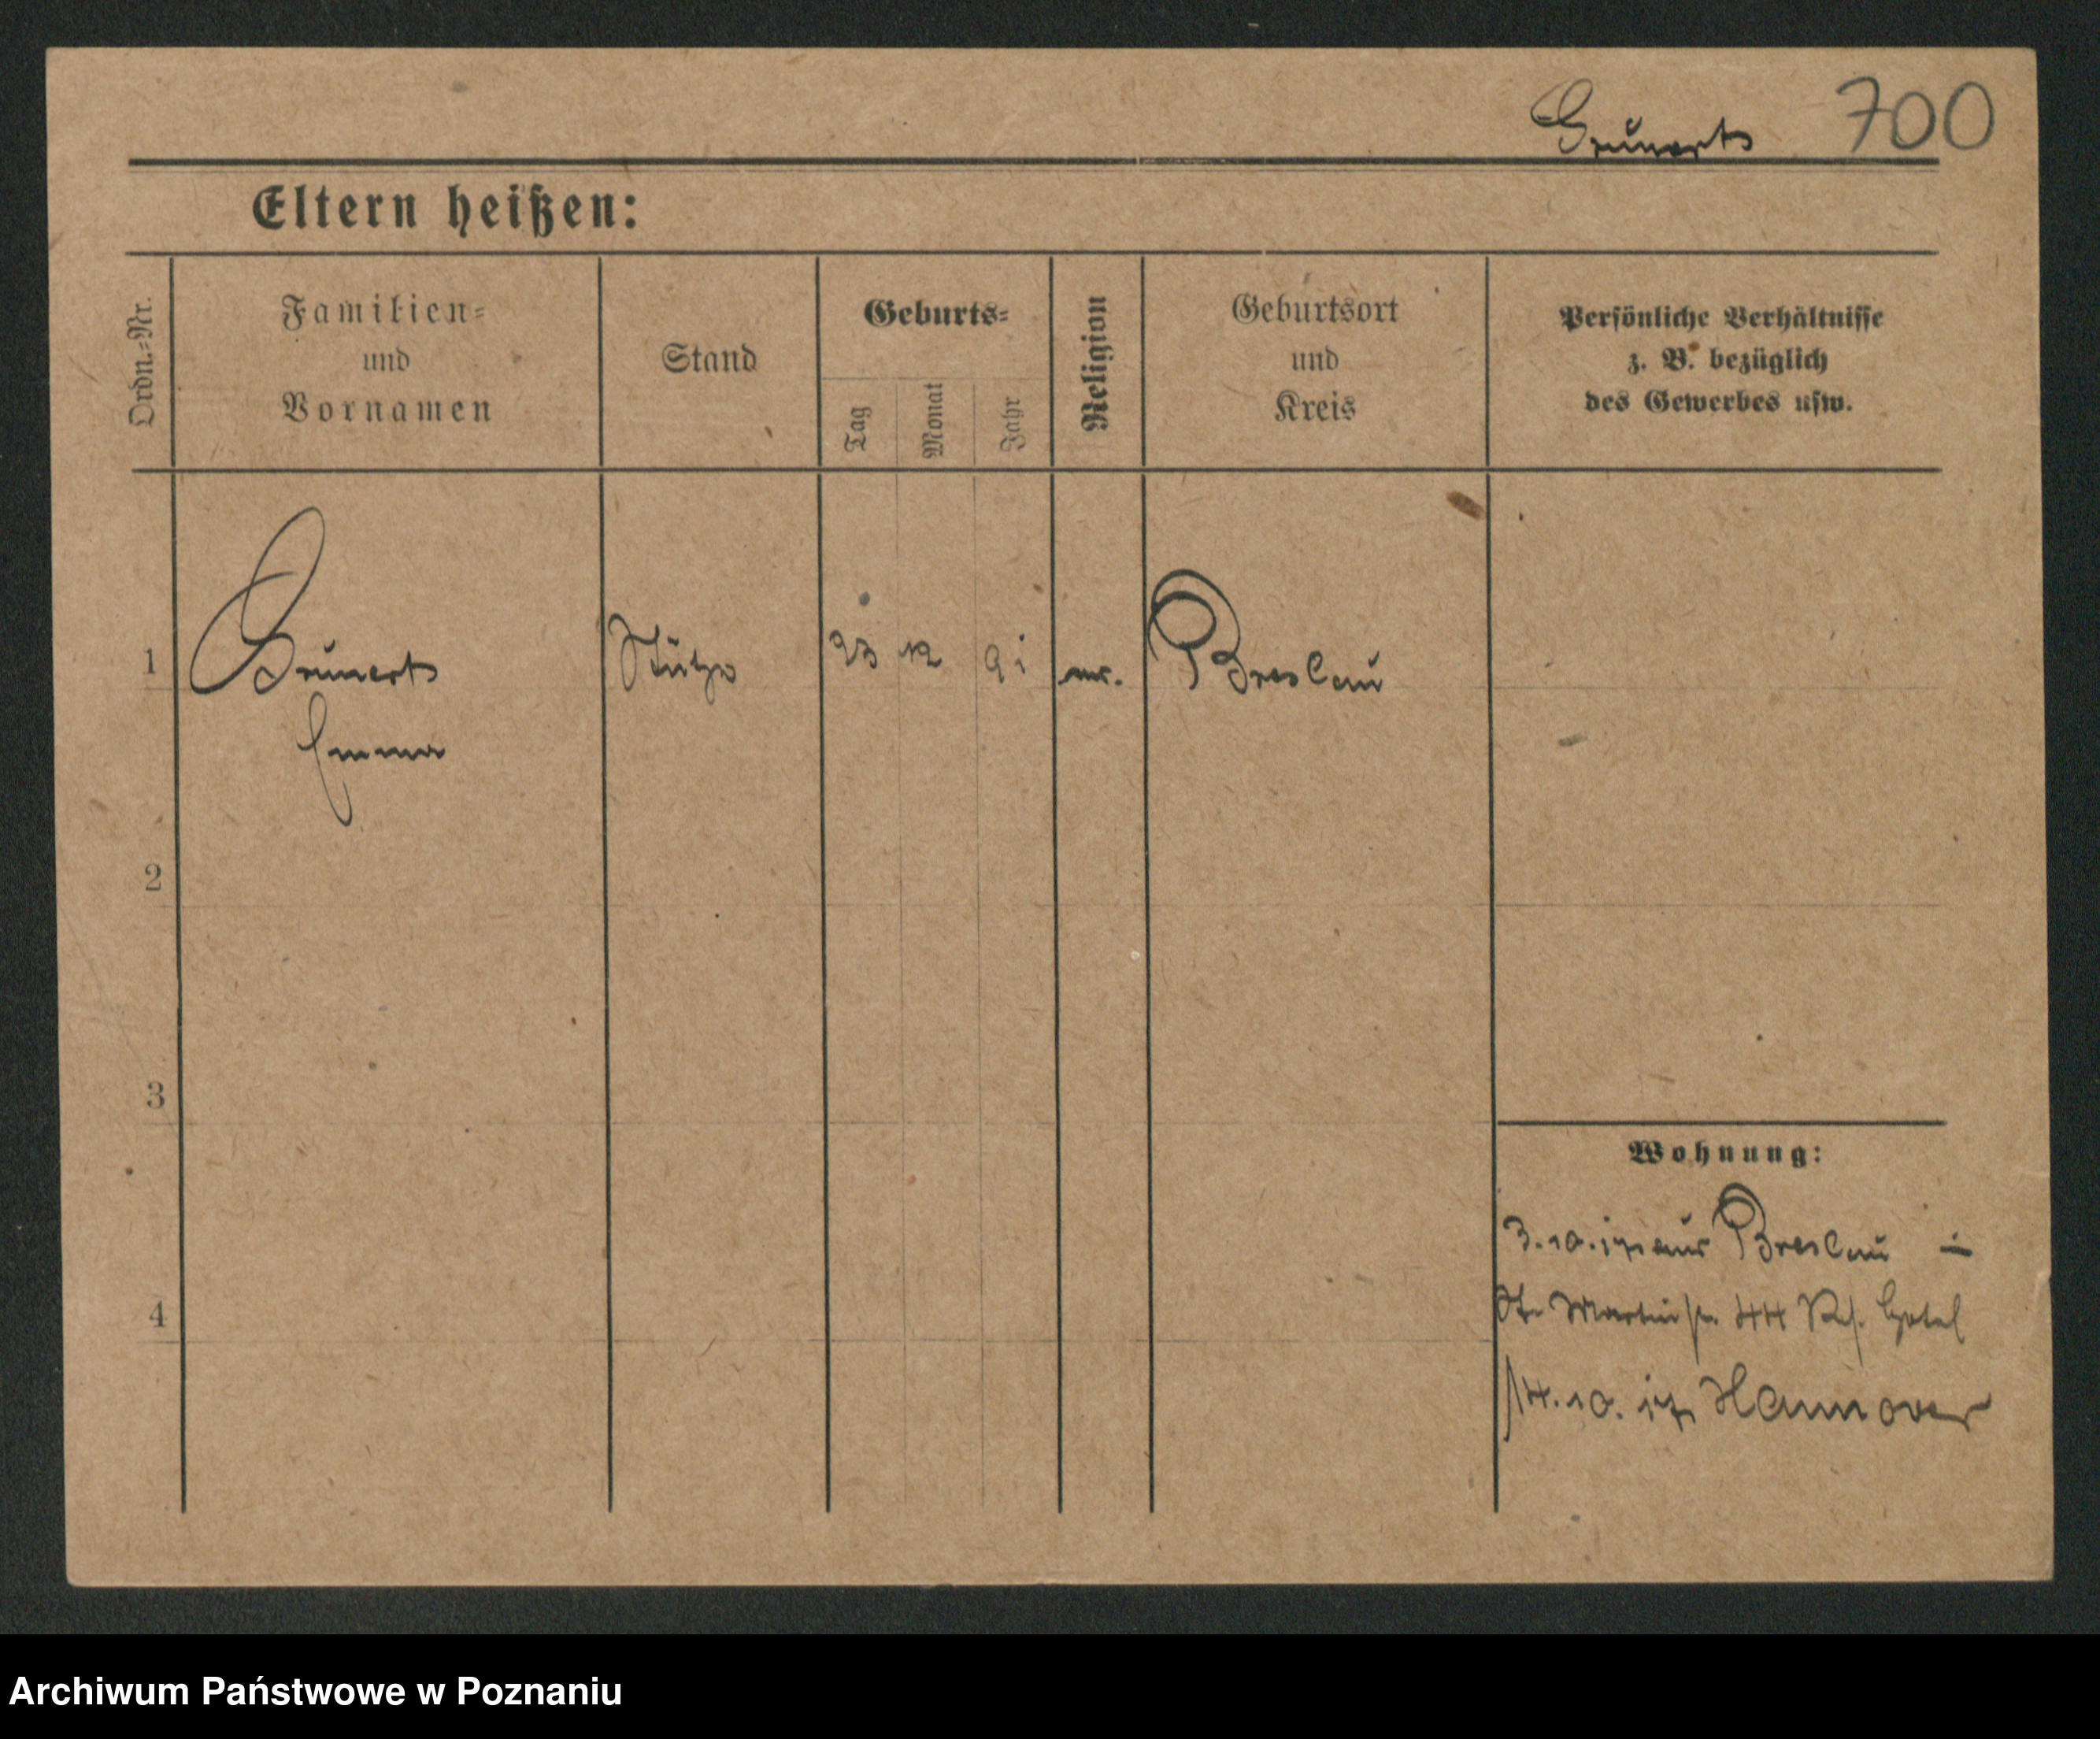 Grunert 700
Eltern heißen:
Ordn.=Nr.
Familien=
und
Vornamen
Stand
Geburts=
Tag
Monat
Jahr
Religion
Geburtsort
und
Kreis
Persönliche Verhältnisse
z. B. bezüglich
des Gewerbes usw.
1 Grunert Stütze 23 12 91 ev. Breslau
Emma
2
3
4
Wohnung:
3.10.17 aus Breslau
St. Martinstr. 44 Hotel
14.10.17 Hannover
Archiwum Państwowe w Poznaniu